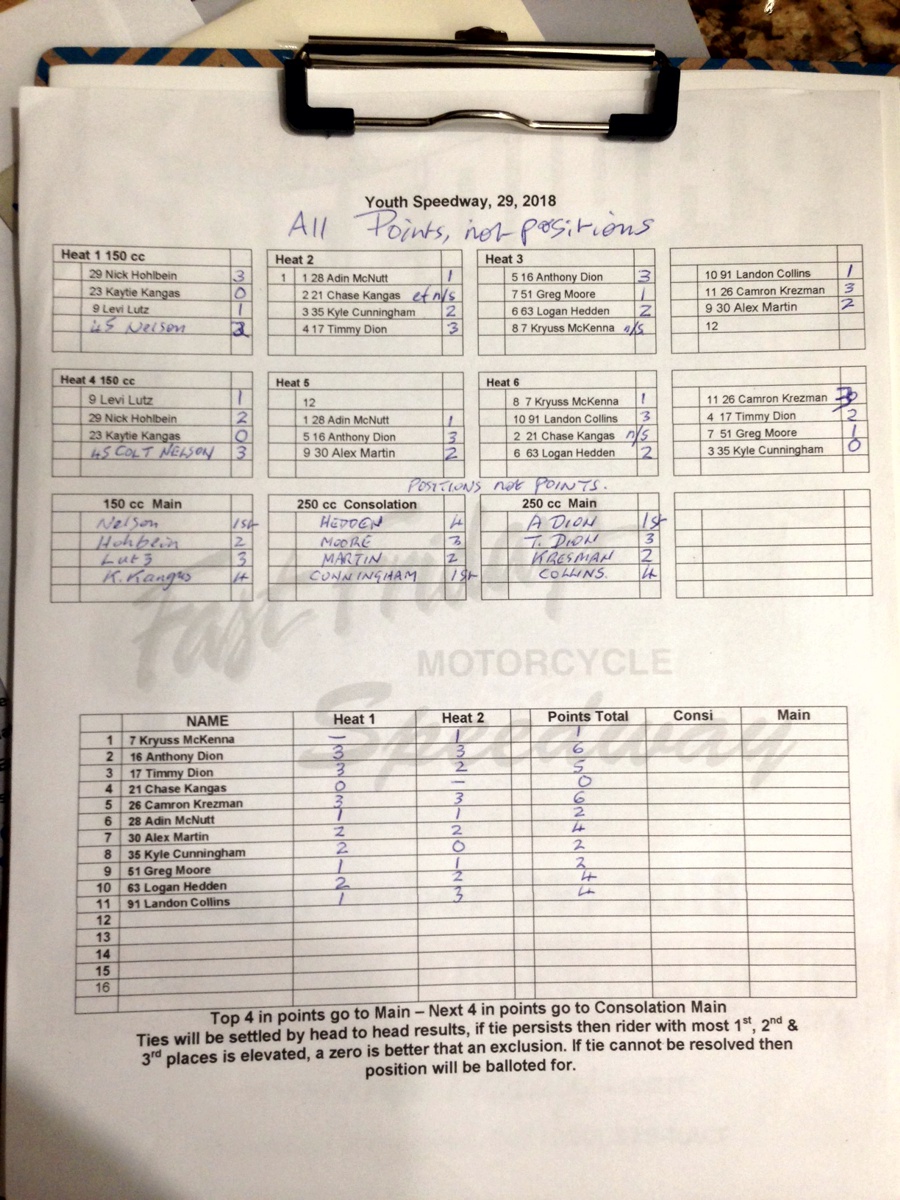 Youth Speedway, 29, 2018
All Points, not positions
Heat 1 150 cc
29 Nick Hohlbein 3
23 Kaytie Kangas 0
9 Levi Lutz 1
45 Nelson
Heat 2
1 1 28 Adin McNutt 1
2 21 Chase Kangas ef n/s
3 35 Kyle Cunningham 2
4 17 Timmy Dion 3
Heat 3
5 16 Anthony Dion 3
7 51 Greg Moore 1
6 63 Logan Hedden 2
8 7 Kryuss McKenna n/s
10 91 Landon Collins 1
11 26 Camron Krezman 3
9 30 Alex Martin 2
12
Heat 4 150 cc
9 Levi Lutz 1
29 Nick Hohlbein 2
23 Kaytie Kangas 0
45 COLT NELSON 3
Heat 5
12
1 28 Adin McNutt 1
5 16 Anthony Dion 3
9 30 Alex Martin 2
Heat 6
8 7 Kryuss McKenna 1
10 91 Landon Collins 3
2 21 Chase Kangas n/s
6 63 Logan Hedden 2
11 26 Camron Krezman 3
4 17 Timmy Dion 2
7 51 Greg Moore 1
3 35 Kyle Cunningham 0
POSITIONS not POINTS.
150 cc Main
Nelson 1st
Hohbein 2
Lutz 3
K. Kangas 4
250 cc Consolation
HEDDEN 4
MOORE 3
MARTIN 2
CUNNINGHAM 1st
250 cc Main
A DION 1st
T. DION 3
KRESMAN 2
COLLINS. 4
Fast Friday
MOTORCYCLE
Speedway
NAME Heat 1 Heat 2 Points Total Consi Main
1 7 Kryuss McKenna — 1 1
2 16 Anthony Dion 3 3 6
3 17 Timmy Dion 3 2 5
4 21 Chase Kangas 0 — 0
5 26 Camron Krezman 3 3 6
6 28 Adin McNutt 1 1 2
7 30 Alex Martin 2 2 4
8 35 Kyle Cunningham 2 0 2
9 51 Greg Moore 1 1 2
10 63 Logan Hedden 2 2 4
11 91 Landon Collins 1 3 4
12
13
14
15
16
Top 4 in points go to Main – Next 4 in points go to Consolation Main
Ties will be settled by head to head results, if tie persists then rider with most 1st, 2nd &
3rd places is elevated, a zero is better that an exclusion. If tie cannot be resolved then
position will be balloted for.